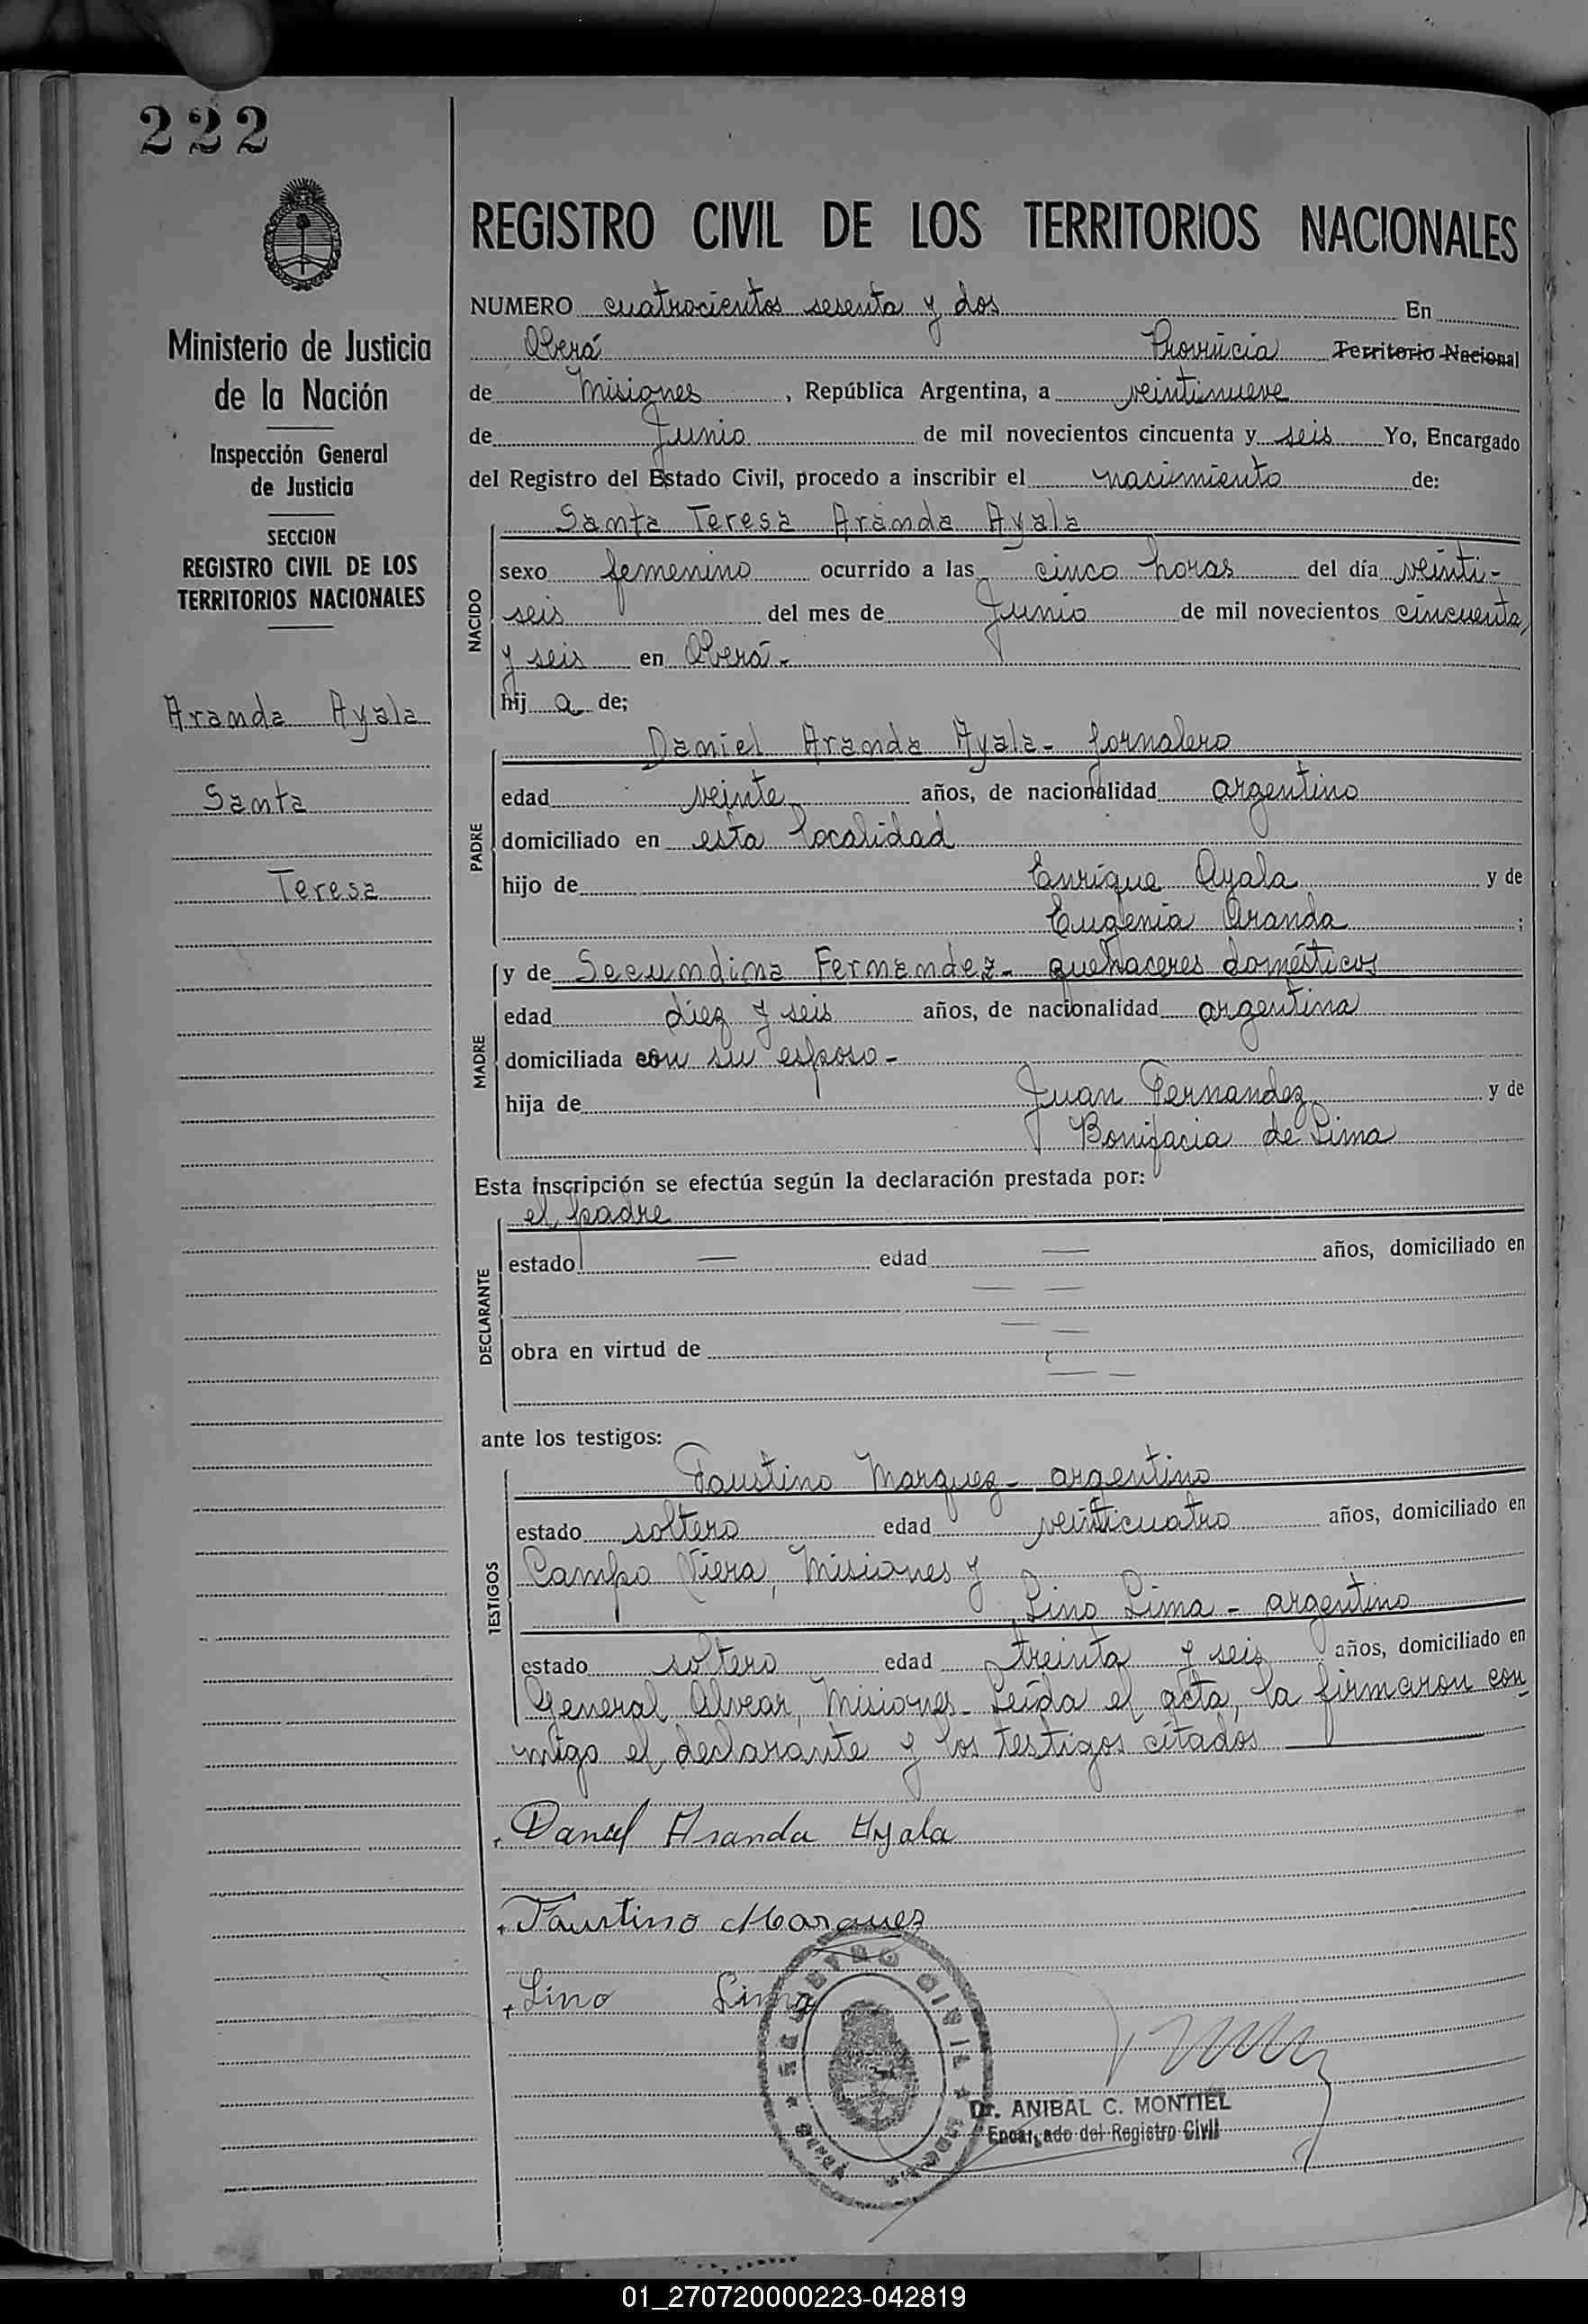 222
Ministerio de Justicia
de la Nación
Inspección General
de Justicia
SECCION
REGISTRO CIVIL DE LOS
TERRITORIOS NACIONALES
Aranda Ayala
Santa
Teresa
REGISTRO CIVIL DE LOS TERRITORIOS NACIONALES
NUMERO cuatrocientos sesenta y dos En
Oberá Provincia Territorio Nacional
de Misiones, República Argentina, a veintinueve
de Junio de mil novecientos cincuenta y seis Yo, Encargado
del Registro del Estado Civil, procedo a inscribir el nacimiento de:
Santa Teresa Aranda Ayala
NACIDO
sexo femenino ocurrido a las cinco horas del día veinti-
seis del mes de Junio de mil novecientos cincuenta
y seis en Oberá.-
hija de;
Daniel Aranda Ayala- jornalero
PADRE
edad veinte años, de nacionalidad argentino
domiciliado en esta localidad
hijo de Enrique Ayala y de
Eugenia Aranda;
y de Secundina Fernandez- quehaceres domésticos
MADRE
edad diez y seis años, de nacionalidad argentina
domiciliada con su esposo-
hija de Juan Fernandez y de
Bonifacia de Lima
Esta inscripción se efectúa según la declaración prestada por:
el padre
DECLARANTE
estado — edad — años, domiciliado en
obra en virtud de
ante los testigos:
Faustino Marquez- argentino
TESTIGOS
estado soltero edad veinticuatro años, domiciliado en
Campo Viera, Misiones y
Lino Lima - argentino
estado soltero edad treinta y seis años, domiciliado en
General Alvear, Misiones- Leída el acta, la firmaron con
migo el declarante y los testigos citados
Daniel Aranda Ayala
Faustino Marquez
Lino Lima
REGISTRO CIVIL
Dr. ANIBAL C. MONTIEL
Encargado del Registro Civil
01_270720000223-042819